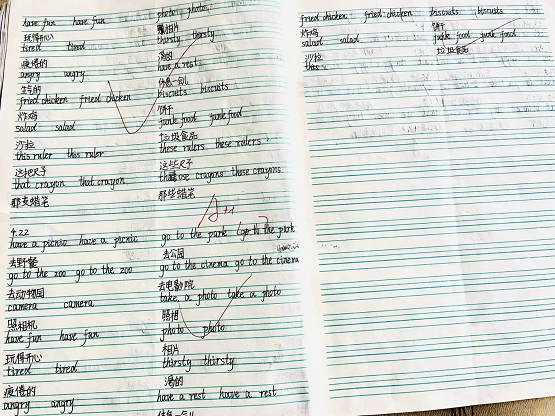 have fun have fun
photo photo
玩得开心
照相片
tired tired
thirsty thirsty
疲倦的
渴的
angry angry
have a rest
生气的
休息一会儿
fried chicken fried chicken
biscuits biscuits
炸鸡
饼干
salad salad
junk food junk food
沙拉
垃圾食品
this ruler this ruler
these rulers these rulers
这把尺子
这些尺子
that crayon that crayon
those crayons those crayons
那支蜡笔
那些蜡笔
4.22
have a picnic have a picnic
go to the park go to the park
去野餐
去公园
go to the zoo go to the zoo
go to the cinema go to the cinema
去动物园
去电影院
camera camera
take a photo take a photo
照相机
照相
have fun have fun
photo photo
玩得开心
相片
tired tired
thirsty thirsty
疲倦的
渴的
angry angry
have a rest have a rest
fried chicken fried chicken
biscuits biscuits
炸鸡
饼干
salad salad
junk food junk food
沙拉
垃圾食品
this